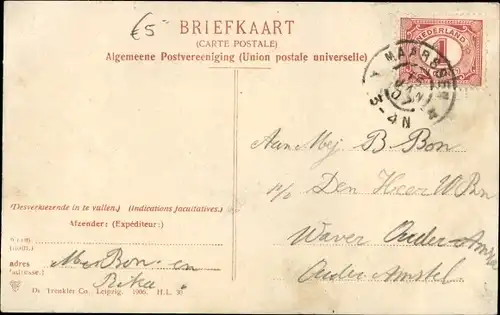 €5
BRIEFKAART
(CARTE POSTALE)
Algemeene Postvereeniging (Union postale universelle)
NEDERLAND
1
MAARSSEN
15 JAN 07
3-4N
Aan Mej B. Bon
p/a Den Heer W Bon
Waver Ouder-Amstel
Ouder Amstel
(Desverkiezende in te vullen.) (Indications facultatives.)
Afzender: (Expéditeur:)
Naam:
(Nom:)
adres
(adresse:)
Bon en
Rika
Dr. Trenkler Co. Leipzig. 1906. H.L. 30